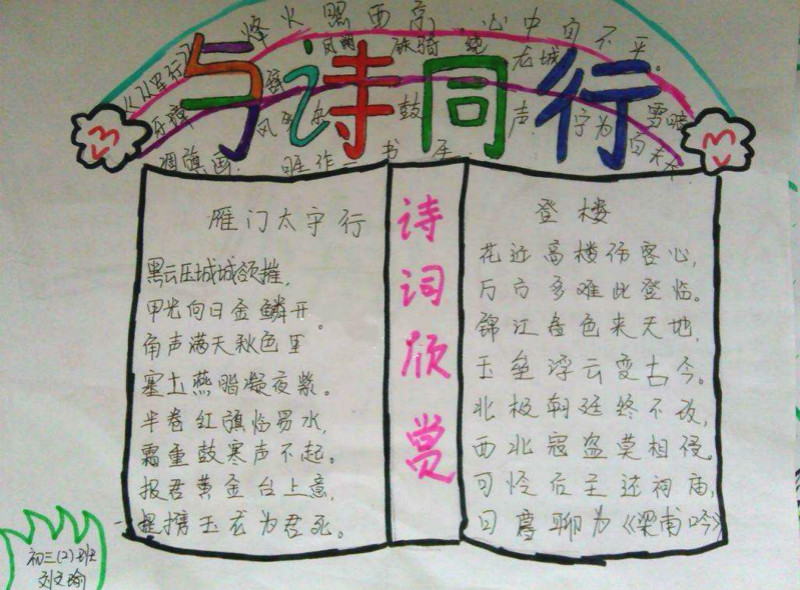 《从军行》
烽火照西京,心中自不平。
牙璋 凤阙 铁骑 绕 龙城
风多 鼓声 宁为 雪暗
凋旗画 胜作一书生 百夫长
与诗同行
诗词欣赏
雁门太守行
黑云压城城欲摧,
甲光向日金鳞开。
角声满天秋色里
塞土燕脂凝夜紫。
半卷红旗临易水,
霜重鼓寒声不起。
报君黄金台上意,
提携玉龙为君死。
登楼
花近高楼伤客心,
万方多难此登临。
锦江春色来天地,
玉垒浮云变古今。
北极朝廷终不改,
西北寇盗莫相侵。
可怜后主还祠庙,
日暮聊为《梁甫吟》
初三(2)班
刘文瑜